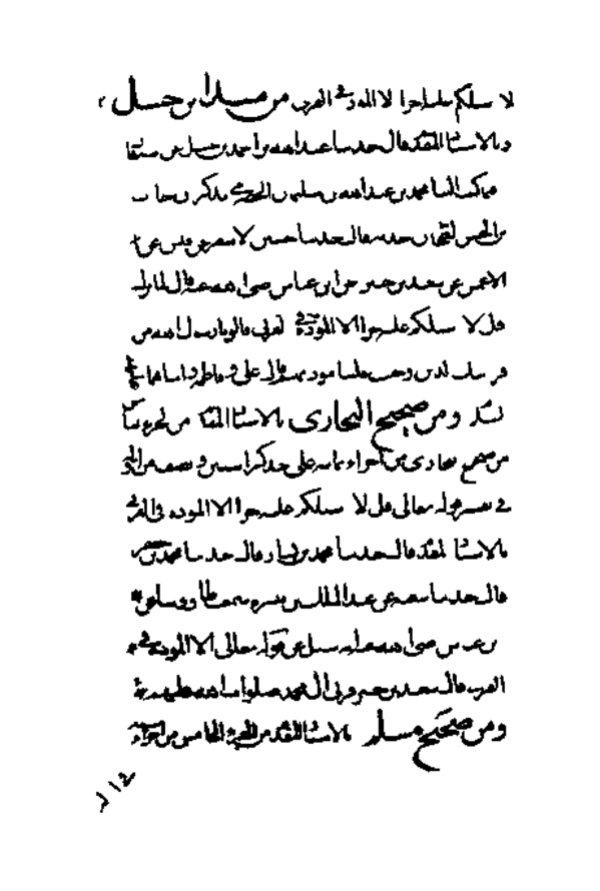 لا اسألكم عليه اجرا الا المودة في القربى من مسند ابن حنبل
وبالاسناد المقدم قال حدثنا عبد الله بن احمد بن حنبل
كتب الينا محمد بن عبد الله بن سليمان الحضرمي يذكر ان حرب
بن الحسن الطحان حدثه قال حدثنا حسين الاشقر عن قيس عن
الاعمش عن سعيد بن جبير عن ابن عباس رضي الله عنه قال لما نزلت
قل لا اسألكم عليه اجرا الا المودة في القربى قالوا يا رسول الله من
قرابتك الذين وجبت علينا مودتهم قال علي وفاطمة وابناهما
ومن صحيح البخاري بالاسناد المقدم من الجزء
من صحيح البخاري من اجزاء ثمانية على حد كراسين ونصف من الجزء
في تفسير قوله تعالى قل لا اسألكم عليه اجرا الا المودة في القربى
بالاسناد المقدم قال حدثنا محمد بن بشار قال حدثنا محمد بن جعفر
قال حدثنا شعبة عن عبد الملك بن ميسرة سمعت طاووسا عن
ابن عباس رضي الله عنه انه سئل عن قوله تعالى الا المودة في
القربى قال سعيد بن جبير قربى ال محمد صلوات الله عليهم
ومن صحيح مسلم بالاسناد المقدم من الجزء الخامس من اجزاء